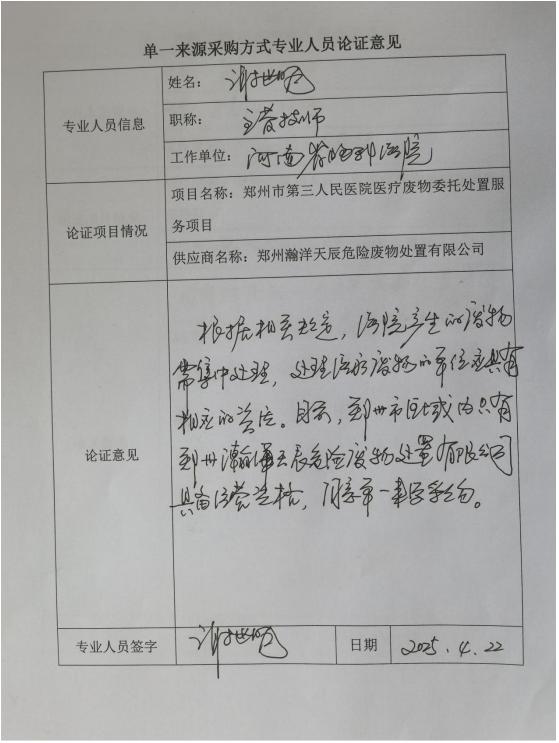 单一来源采购方式专业人员论证意见
专业人员信息
姓名：
职称：主管技师
工作单位：河南省医院
论证项目情况
项目名称：郑州市第三人民医院医疗废物委托处置服
务项目
供应商名称：郑州瀚洋天辰危险废物处置有限公司
论证意见
根据相关规定，医院产生的废物
需集中处理，处理医疗废物的单位应具有
相应的资质。目前，郑州市区域内只有
郑州瀚洋天辰危险废物处置有限公司
具备经营资格，同意单一来源采购。
专业人员签字
日期
2025.4.22